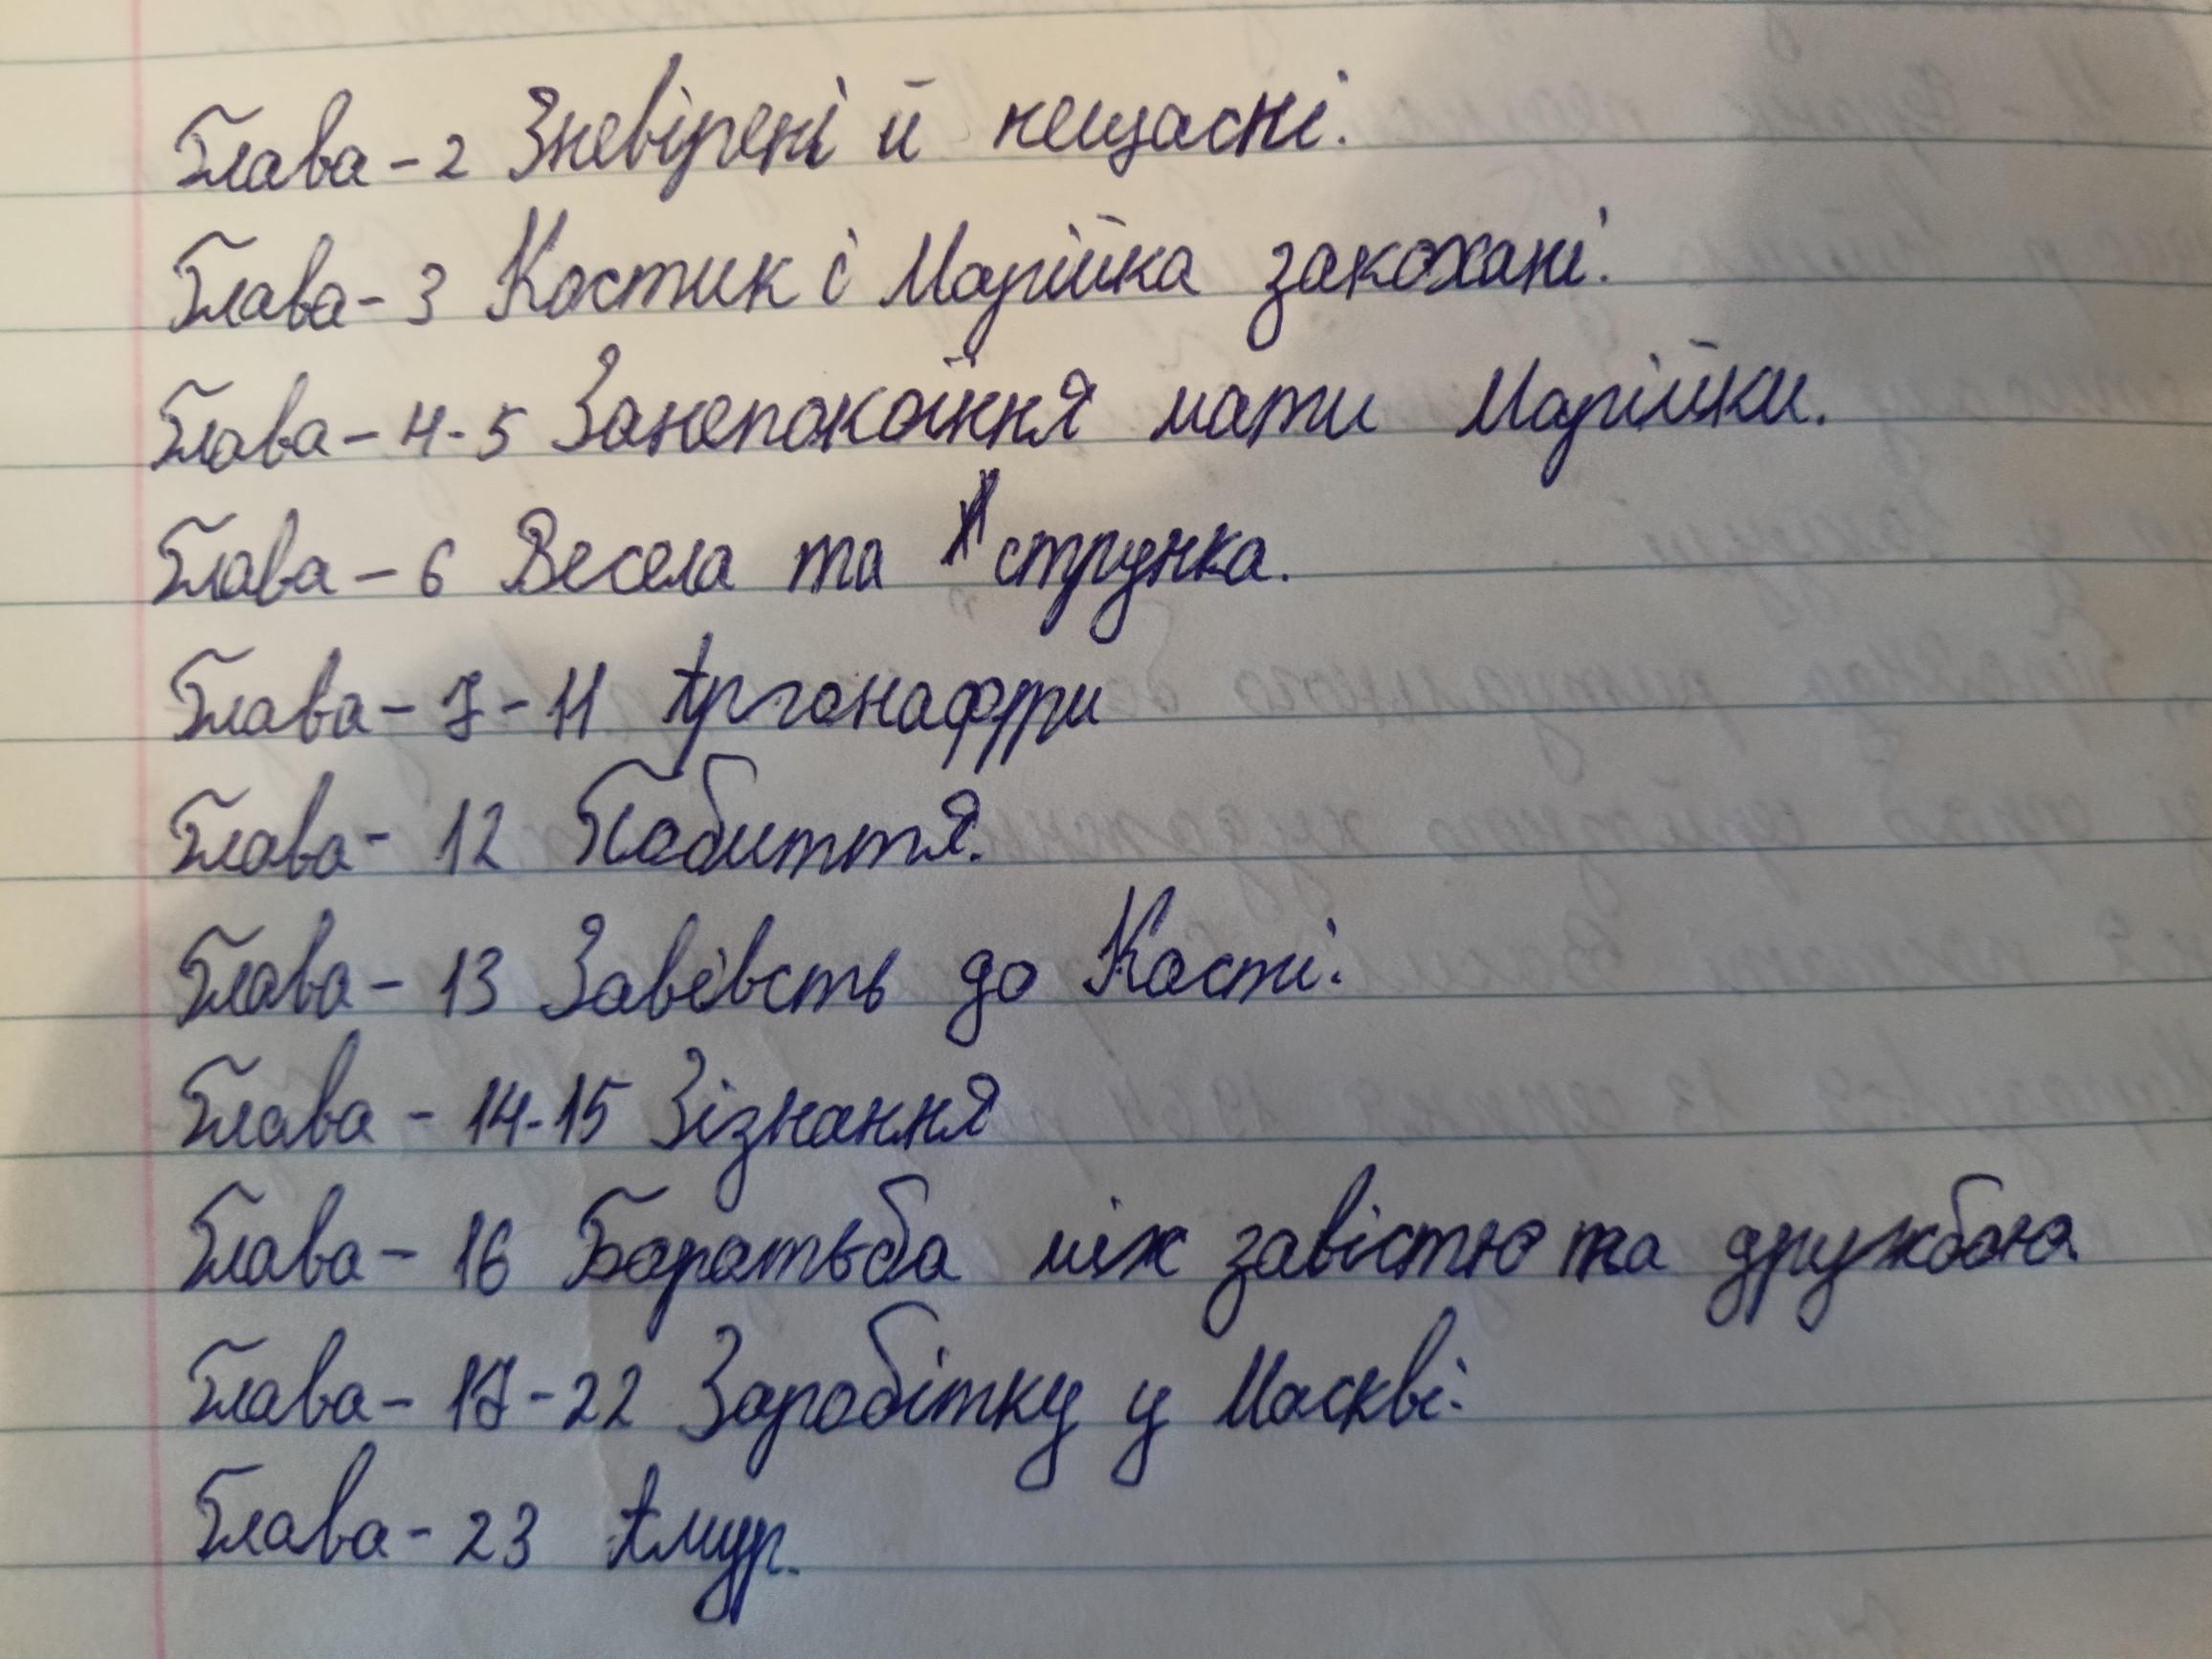 Глава - 2 Зневірені й нещасні.
Глава - 3 Костик і Марійка закохані.
Глава - 4-5 Занепокоїння мати Марійки.
Глава - 6 Весела та струнка.
Глава - 7 - 11 Аргонафри
Глава - 12 Побиття.
Глава - 13 Завівсть до Кості.
Глава - 14-15 Зізнання
Глава - 16 Боротьба між завістю та дружбою.
Глава - 17-22 Заробітку у Москві.
Глава - 23 Амур.